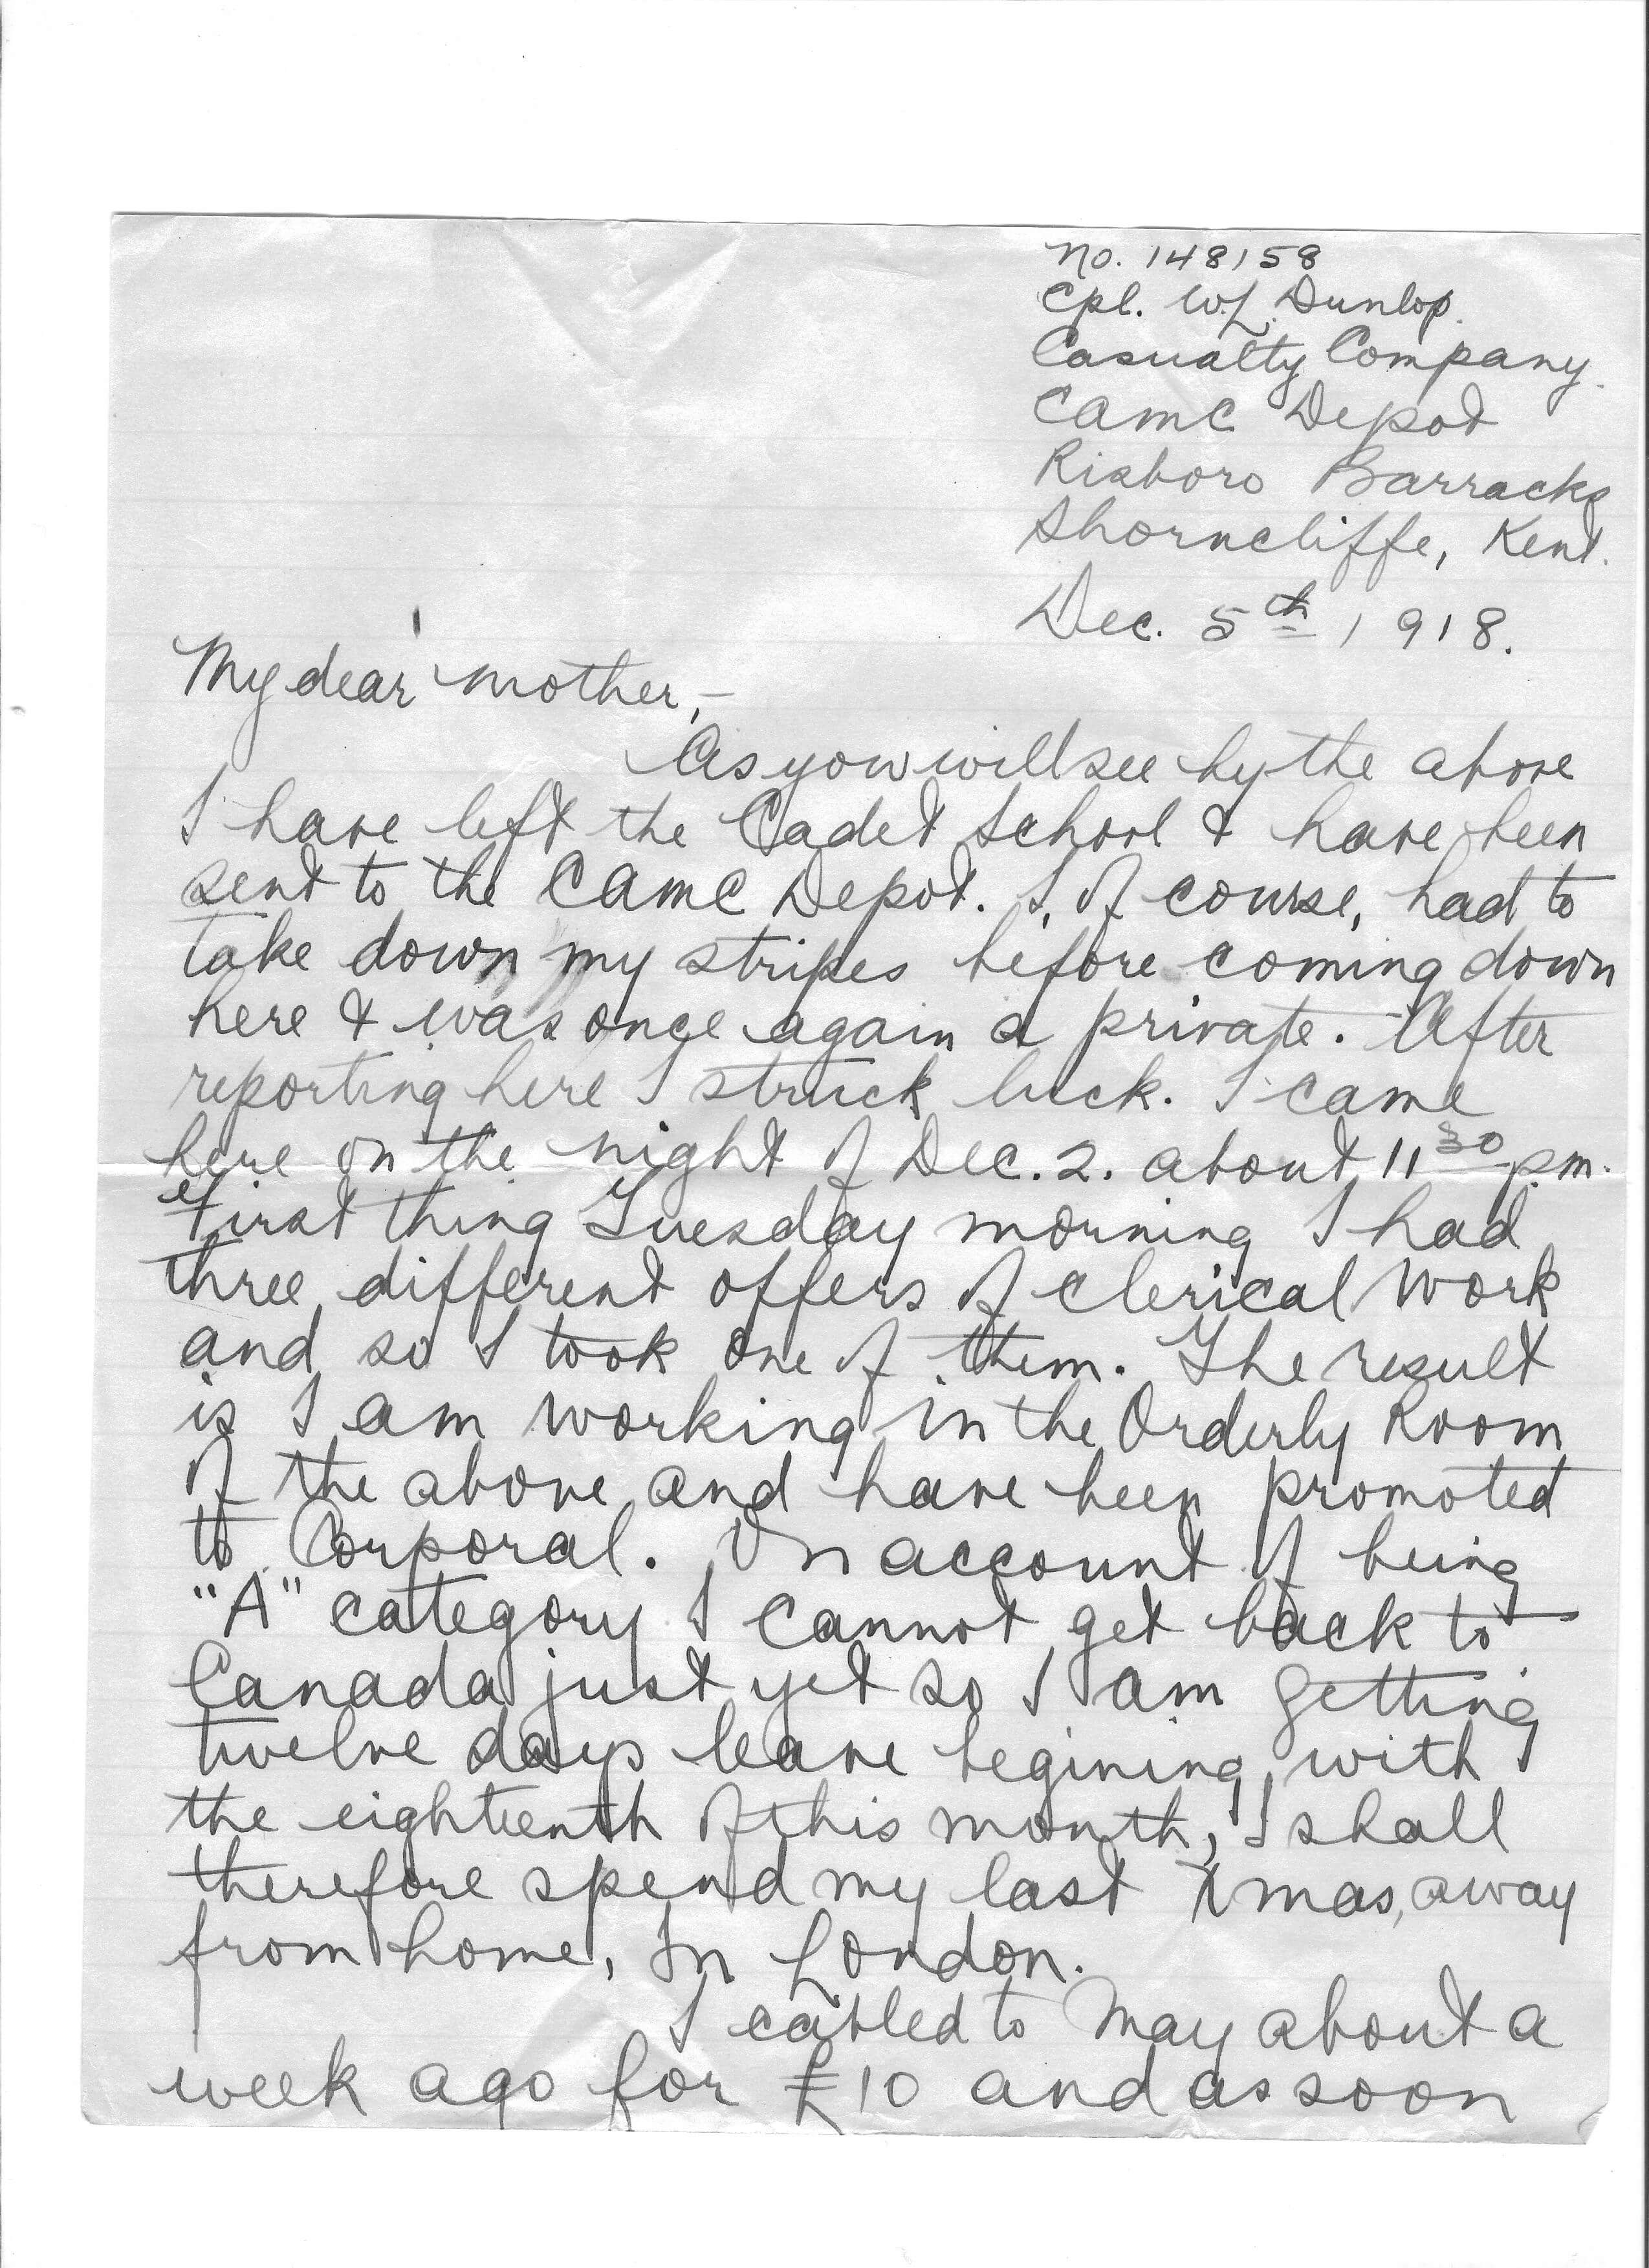 No. 148158
Cpl. W.L. Dunlop.
Casualty Company.
CAMC Depot
Risboro Barracks
Shorncliffe, Kent.
Dec. 5th 1918.
My dear mother,-
As you will see by the above
I have left the Cadet School & have been
sent to the CAMC Depot. I, of course, had to
take down my stripes before coming down
here & was once again a private. After
reporting here I struck luck. I came
here on the night of Dec. 2. about 11 30 p.m.
First thing Tuesday morning I had
three different offers of clerical work
and so I took one of them. The result
is I am working in the Orderly Room
of the above and have been promoted
to Corporal. On account of being
"A" category I cannot get back to
Canada just yet so I am getting
twelve days leave begining with
the eighteenth of this month, I shall
therefore spend my last Xmas, away
from home, in London.
I cabled to May about a
week ago for £10 and as soon